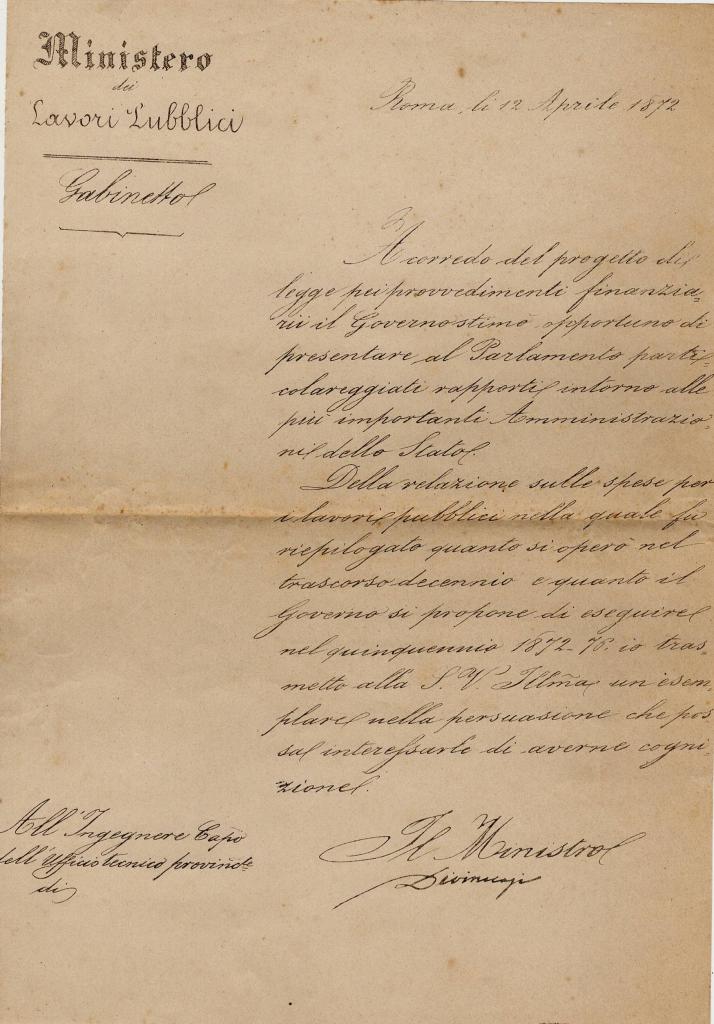 Ministero
dei
Lavori Pubblici
Gabinetto
Roma, li 12 Aprile 1872
A corredo del progetto di
legge pei provvedimenti finanzia=
rii il Governo stimò opportuno di
presentare al Parlamento parti=
colareggiati rapporti intorno alle
più importanti Amministrazio=
ni dello Stato.
Della relazione sulle spese per
i lavori pubblici nella quale fu
riepilogato quanto si operò nel
trascorso decennio e quanto il
Governo si propone di eseguire
nel quinquennio 1872-76. io tras=
metto alla S. V. Illma un esem=
plare nella persuasione che pos
sa interessarle di averne cogni=
zione.
Il Ministro
All'Ingegnere Capo
dell'Ufficio tecnico provincle
di